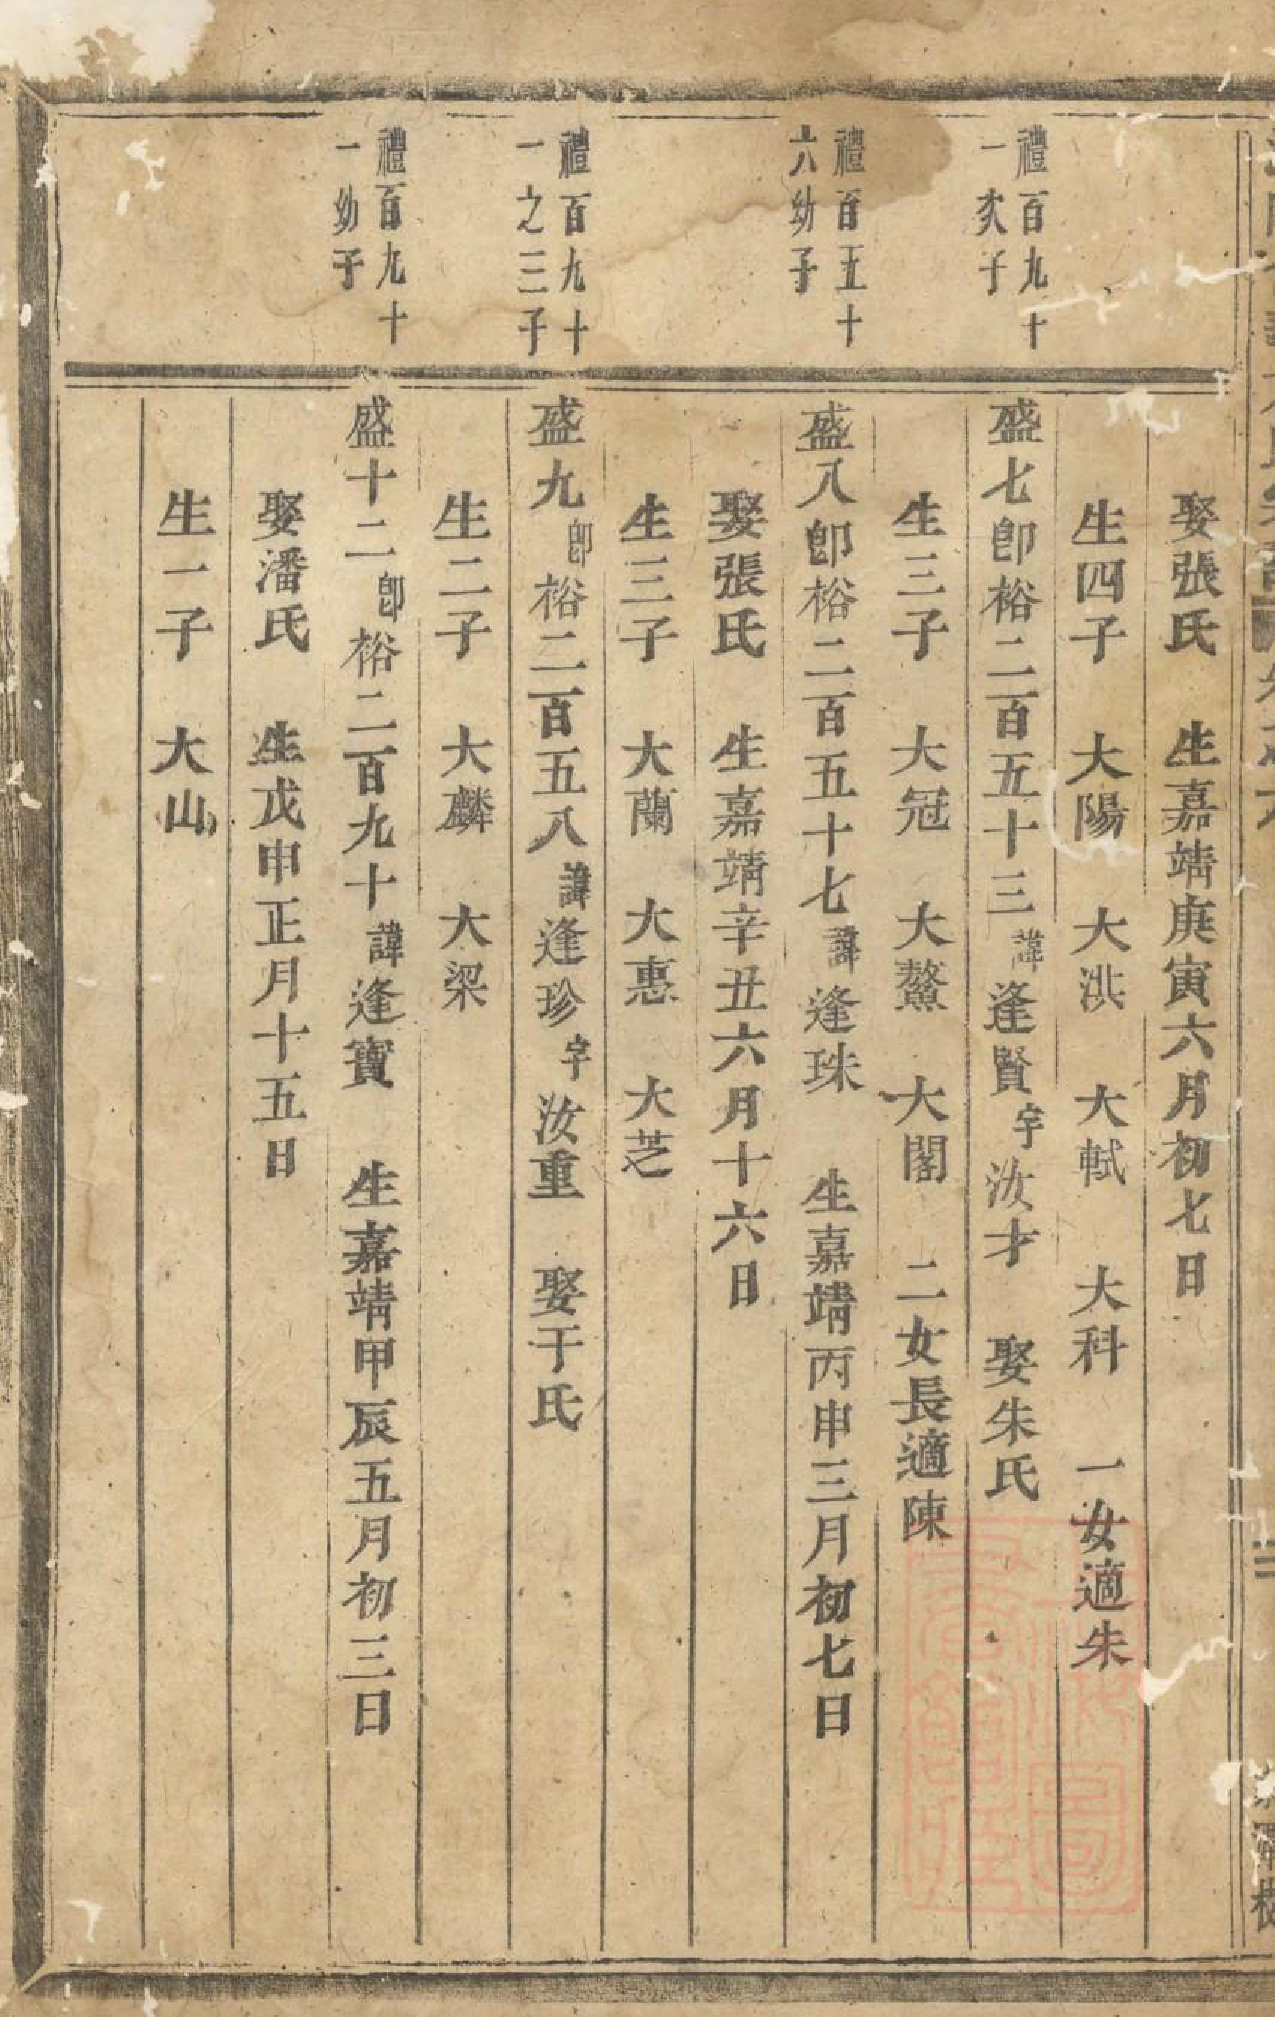 娶張氏 生嘉靖庚寅六月初七日
生四子 大陽 大洪 大軾 大科 一女適朱
禮百九十
一次子
盛七卽裕二百五十三諱逢賢字汝才 娶朱氏
生三子 大冠 大鰲 大閣 二女長適陳
禮百五十
六幼子
盛八卽裕二百五十七諱逢珠 生嘉靖丙申三月初七日
娶張氏 生嘉靖辛丑六月十六日
生三子 大蘭 大惠 大芝
禮百九十
一之三子
盛九卽裕二百五八諱逢珍字汝重 娶于氏
生二子 大麟 大梁
禮百九十
一幼子
盛十二卽裕二百九十諱逢寶 生嘉靖甲辰五月初三日
娶潘氏 生戊申正月十五日
生一子 大山